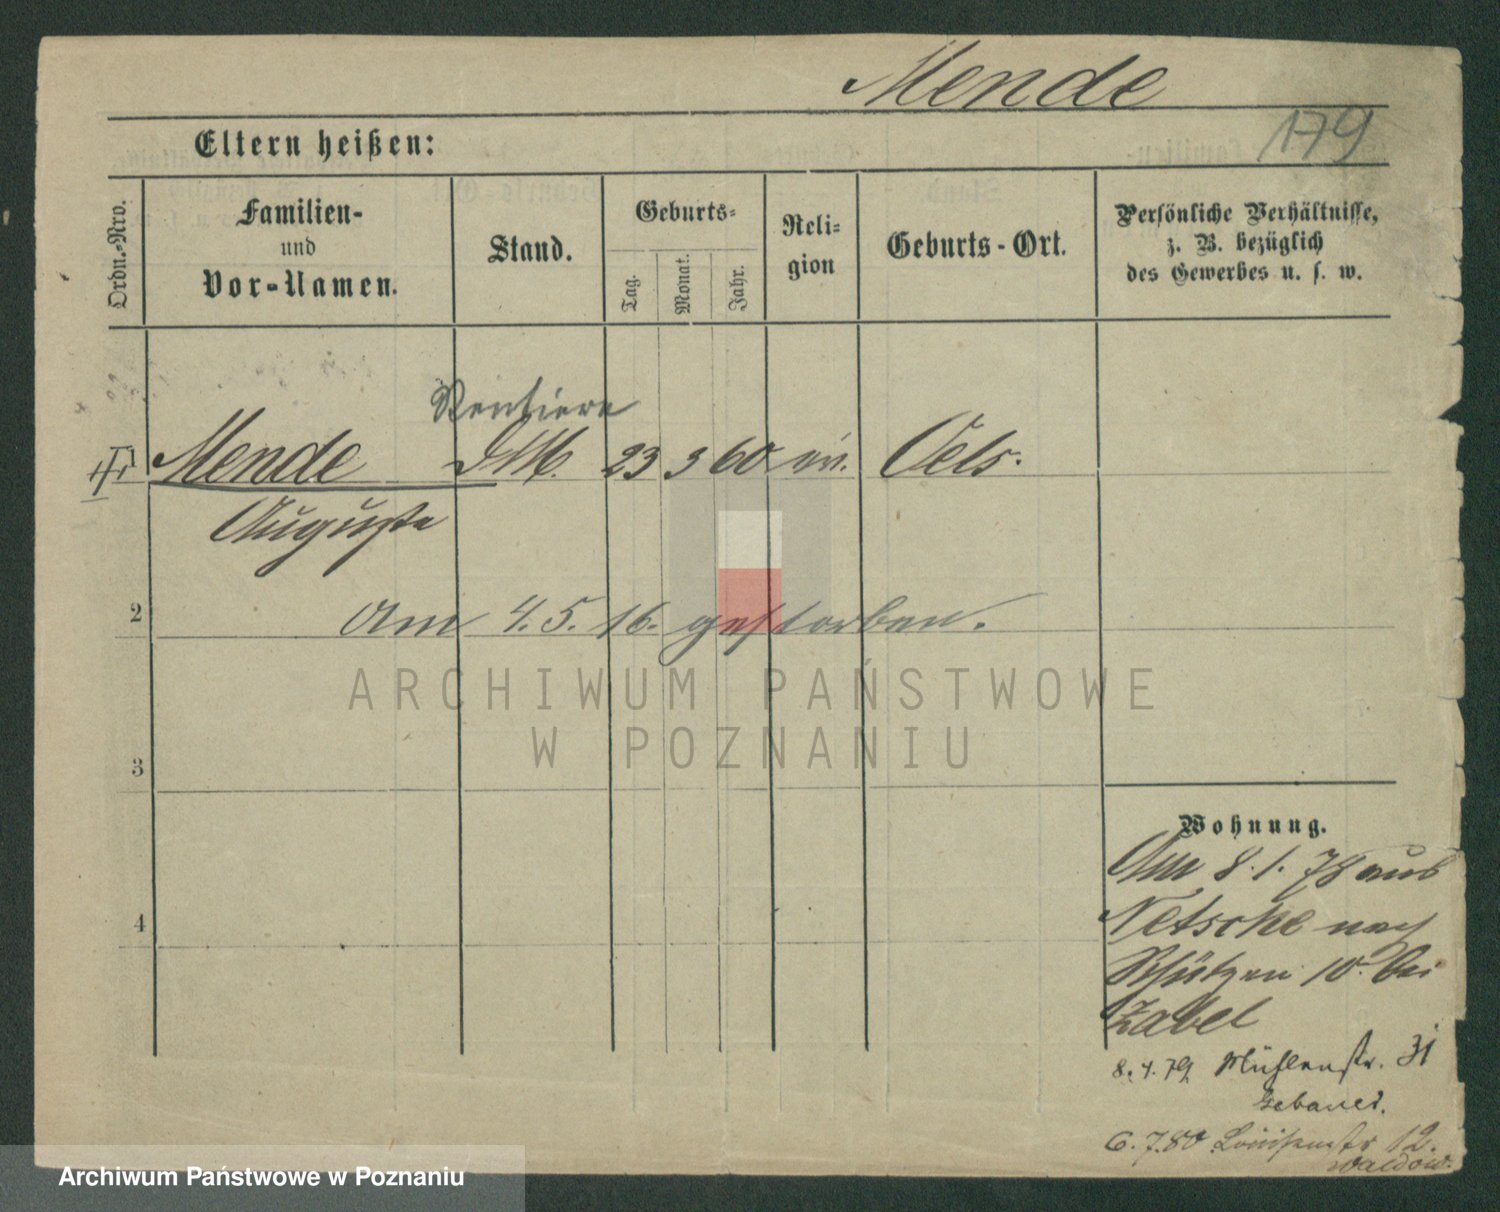 Mende
179
Eltern heißen:
Ordn.-Nro.
Familien-
und
Vor-Namen.
Stand.
Geburts-
Tag.
Monat.
Jahr.
Reli-
gion
Geburts-Ort.
Persönliche Verhältnisse,
z. B. bezüglich
des Gewerbes u. s. w.
Rentiere
Mende 23 3 60 Oels.
Auguste
2
Am 4. 5. 16. gestorben.
ARCHIWUM PAŃSTWOWE
W POZNANIU
3
Wohnung.
Am 8. 1. 78 aus
4
Netschke nach
Schützen 10. bei
Zabel
8. 4. 79 Mühlenstr. 31
Gebauer.
6. 7. 80 Louisenstr 12.
Waldow.
Archiwum Państwowe w Poznaniu